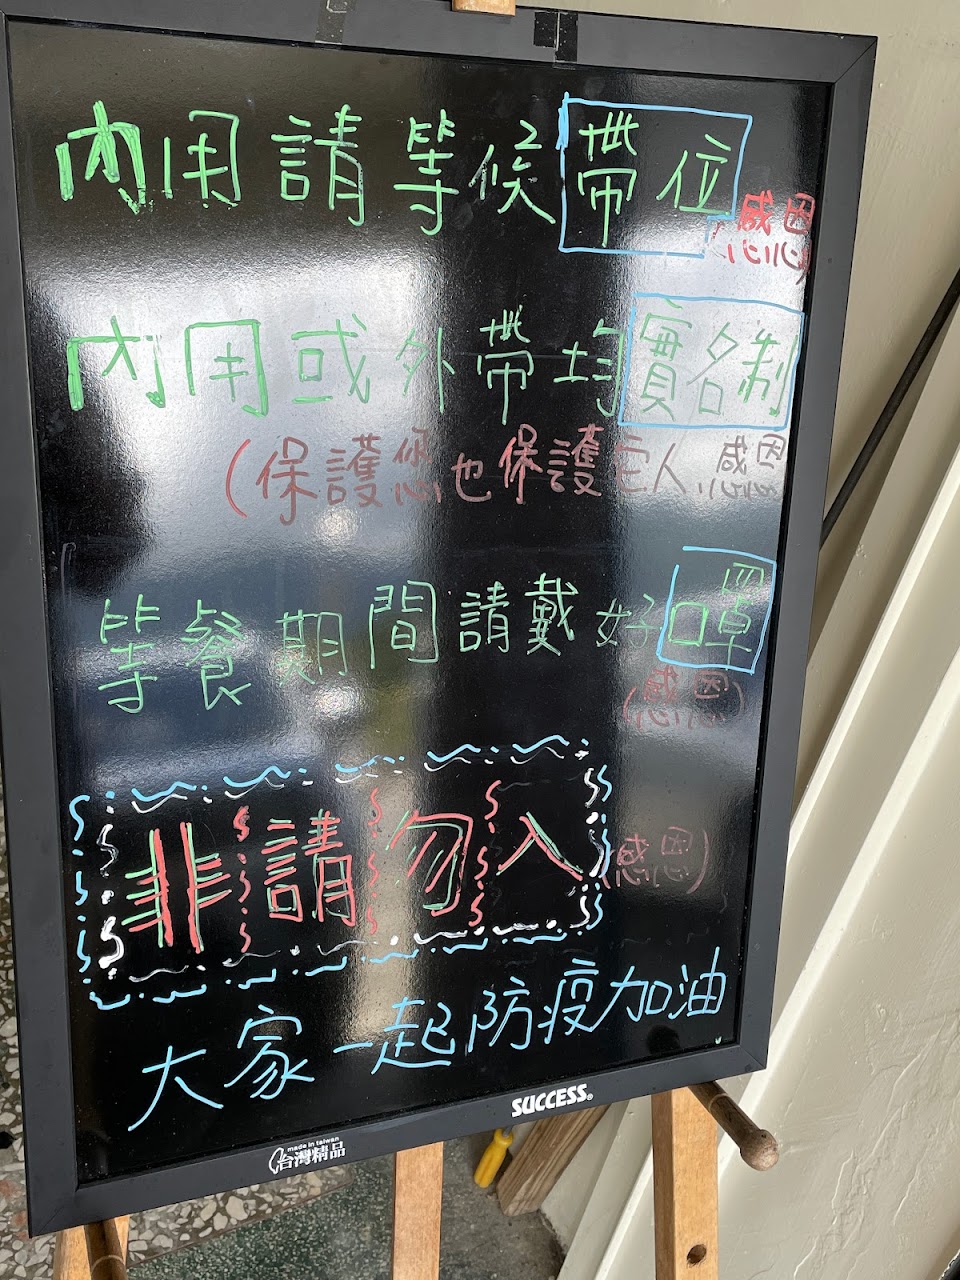 內用請等候帶位
(感恩)
內用或外帶均實名制
(保護您也保護它人 感恩
等餐期間請戴好口罩
(感恩)
非請勿入 (感恩)
大家一起防疫加油
SUCCESS®
made in taiwan
台灣精品